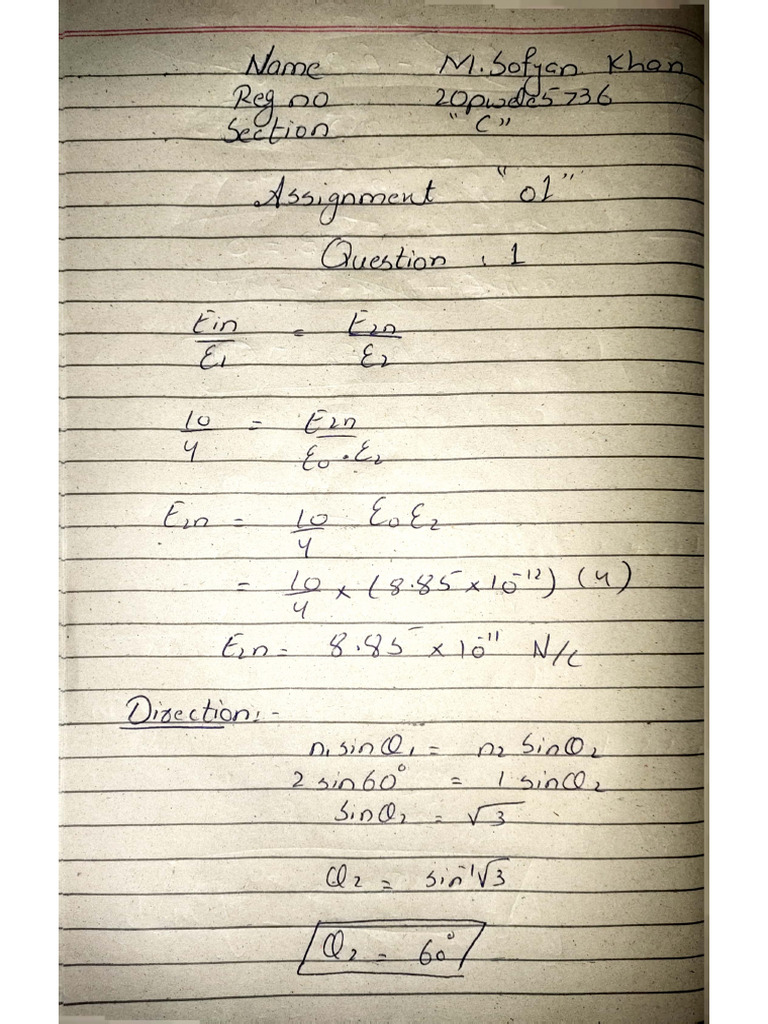 Name M. Sofyan Khan
Reg no 20pwele5736
Section "C"
Assignment "01"
Question : 1
E1n/ε1 = E2n/ε2
10/4 = E2n/ε0.ε2
E2n = 10/4 ε0ε2
= 10/4 × (8.85 × 10^-12) (4)
E2n = 8.85 × 10^-11 N/C
Direction:-
n1 sinθ1 = n2 sinθ2
2 sin60° = 1 sinθ2
sinθ2 = √3
θ2 = sin^-1√3
θ2 = 60°